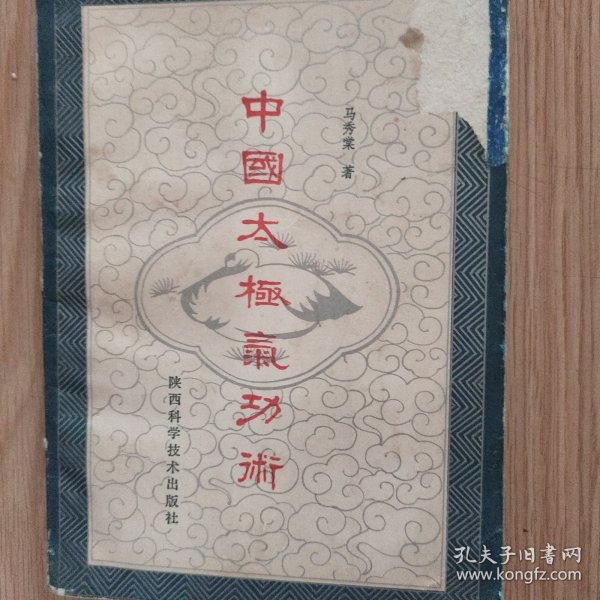 马秀棠 著
中國太極氣功術
陕西科学技术出版社
孔夫子旧书网
www.kongfz.com